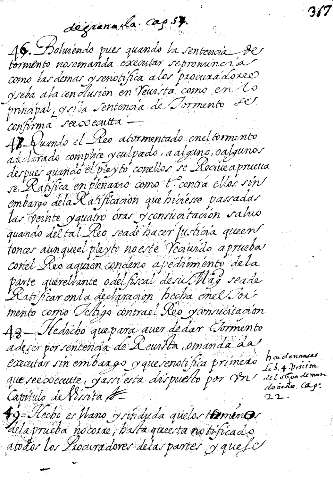 de granada. cap. 54.
317
46. Bolviendo pues quando la sentencia de
tormento no se manda executar se pronuncia
como las demas y se notifica a los procuradores
y se ba a la conclusion en Revista como en lo
prinçipal, y si la Sentencia de Tormento se
confirma se executa
47. Quando el Reo atormentado en el tormento
declarado complice y culpado, a alguno, o algunos
despues quando el pleyto con ellos se Recive a prueva
se Ratifica en plenario como tº contra ellos sin
embargo de la Ratificacion que hiciese passadas
las veinte y quatro oras y con su citacion salvo
quando del tal Reo se a de hacer justicia que en
tonces aunque el pleyto no este Recevido a prueba
con el Reo a quien condeno a pedimento de la
parte querellante o del fiscal de su Magd se a de
Ratificar en la declaracion hecha en el tor
mento como Testigo contra el Reo y con su citacion
48. He dicho que para aver de dar Tormento
a de ser por sentencia de Revista, o mandada
executar sin embargo, y que se notifica primero
que se execute, y assi esta dispuesto por un
Capitulo de Vissita
ordenanças
lib. 4
22.
49. Hecho es llano y sin duda que los terminos
de la prueba no corre, hasta que esta notificado
a todos los Procuradores de las partes y que se